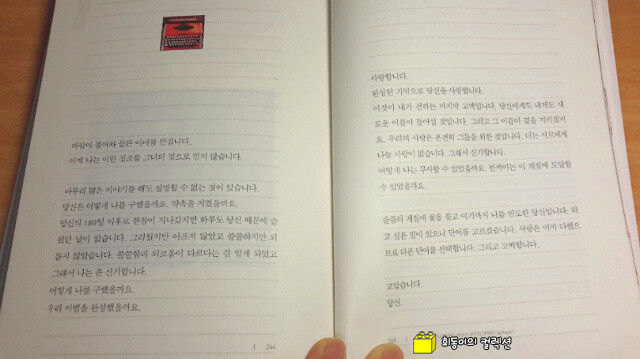 바람이 불어와 잠든 이마를 만집니다.
이제 나는 이런 징조를 그녀의 것으로 믿지 않습니다.
아무리 많은 이야기를 해도 설명할 수 없는 것이 있습니다.
당신은 어떻게 나를 구했을까요. 약속을 지켰을까요.
당신의 180일 이후로 한참이 지나갔지만 하루도 당신 때문에 슬
펐던 날이 없습니다. 그리웠지만 아프지 않았고 쓸쓸하지만 외
롭지 않았습니다. 쓸쓸함과 외로움이 다르다는 걸 알게 되었고
그래서 나는 좀 신기합니다.
어떻게 나를 구했을까요.
우리 이별을 완성했을까요.
244
사랑합니다.
완성된 기억으로 당신을 사랑합니다.
이것이 내가 전하는 마지막 고백입니다. 당신에게도 내게도 새
로운 이름이 들어설 것입니다. 그리고 그 이름이 곁을 지키겠지
요. 우리의 사랑은 온전히 그들을 위한 것입니다. 더는 서로에게
나눌 사랑이 없습니다. 그래서 신기합니다.
어떻게 나는 무사할 수 있었을까요. 한짝이는 이 계절에 도달할
수 있었을까요.
슬픔의 계절에 꽃을 품고 여기까지 나를 인도한 당신입니다. 하
고 싶은 말이 있으니 단어를 고르겠습니다. 사랑은 이미 다했으
므로 다른 단어를 선택합니다. 그리고 고백합니다.
고맙습니다.
당신.
희동이의 컬렉션